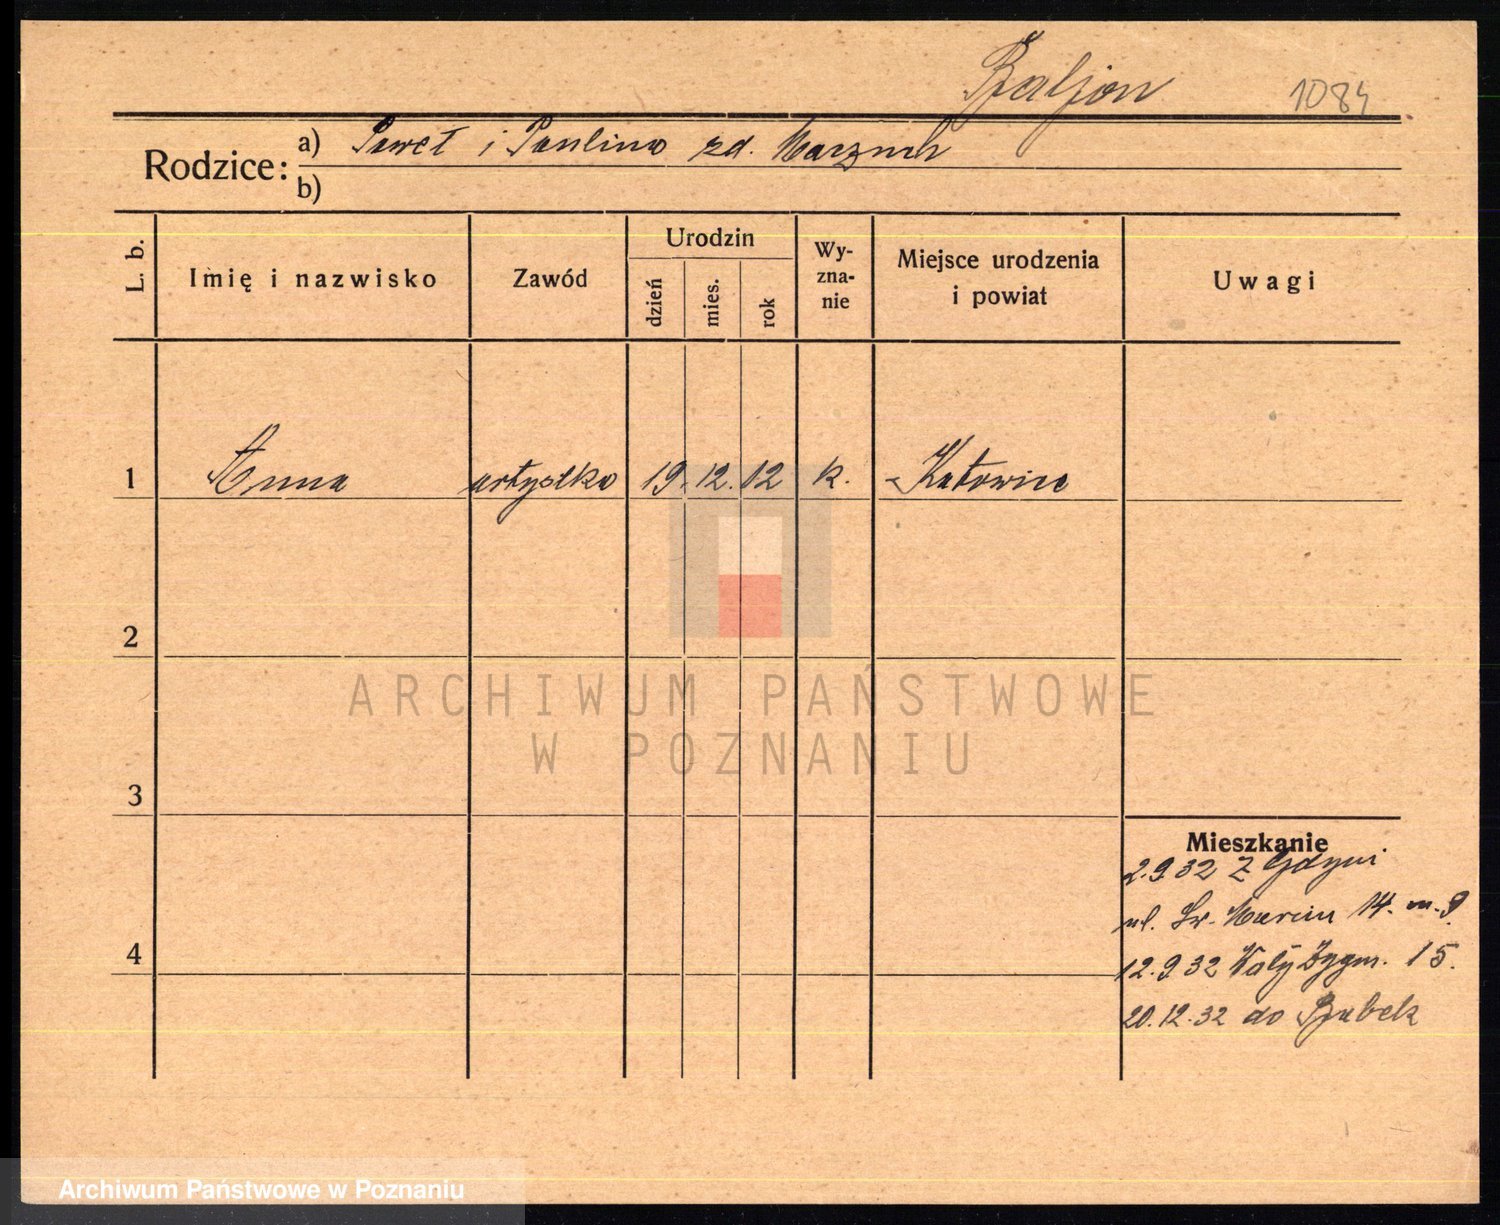 1084
Rodzice: a) Paweł i Paulina zd.
b)
L. b.
Imię i nazwisko
Zawód
Urodzin
dzień
mies.
rok
Wy-
zna-
nie
Miejsce urodzenia
i powiat
Uwagi
1 Anna artystka 19. 12. 12 k. Katowice
2
3
4
Mieszkanie
2.9.32 z Gdyni
ul. Św. Marcin 14. m. 9.
12.9.32 Wały Zygm. 15.
20.12.32 do
ARCHIWUM PAŃSTWOWE
W POZNANIU
Archiwum Państwowe w Poznaniu